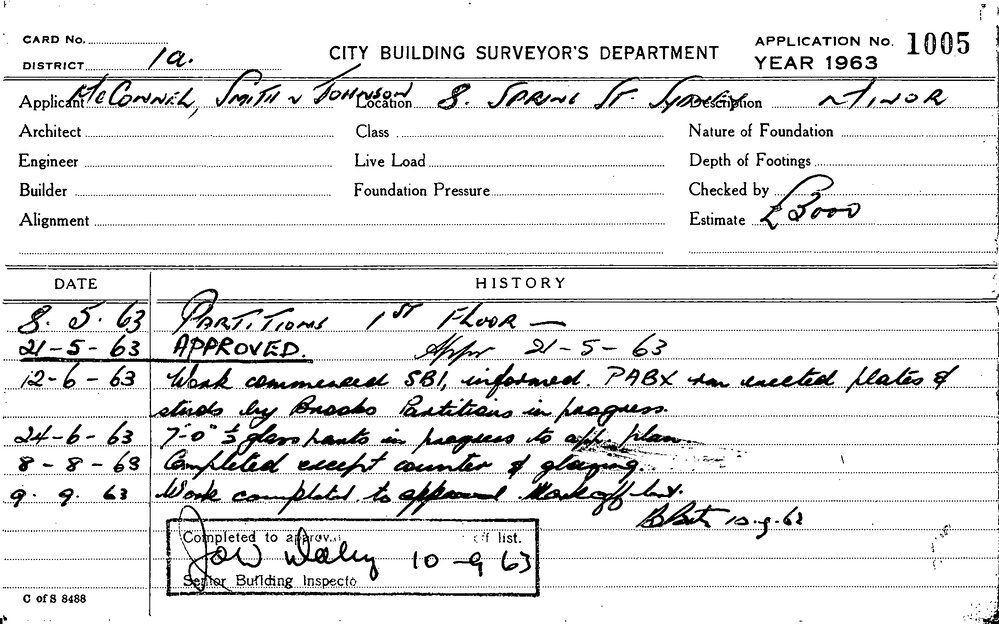 CARD No.
DISTRICT 1a.
CITY BUILDING SURVEYOR'S DEPARTMENT
APPLICATION No. 1005
YEAR 1963
Applicant McCONNEL, SMITH & JOHNSON Location 8. SPRING ST. SYDNEY Description MINOR
Architect Class Nature of Foundation
Engineer Live Load Depth of Footings
Builder Foundation Pressure Checked by
Alignment Estimate £3000
DATE HISTORY
8. 5. 63 PARTITIONS 1ST FLOOR —
21-5-63 APPROVED. Appr 21-5-63
12-6-63 Work commenced SBI, informed. PABX rm erected plates &
studs by Brooks Partitions in progress.
24-6-63 7'-0" glass parts in progress to app. plan
8-8-63 Completed except counter & glazing
9. 9. 63 Work completed to approval Mark off list.
10-9-63
Completed to approv. off list.
10-9 63
Senior Building Inspecto
C of S 8488